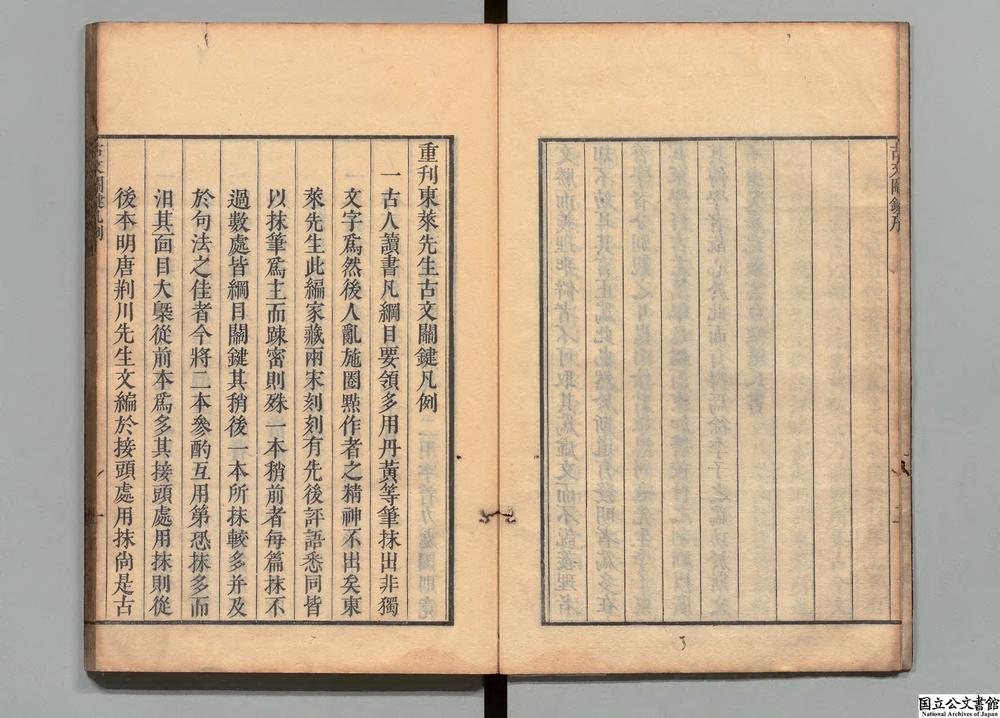 古文關鍵序
重刊東萊先生古文關鍵凡例
一古人讀書凡綱目要領多用丹黃等筆抹出非獨
文字爲然後人亂施圈㸃作者之精神不出矣東
萊先生此編家藏兩宋刻刻有先後評語悉同皆
以抹筆爲主而疎宻則殊一本稍前者每篇抹不
過數處皆綱目關鍵其稍後一本所抹較多并及
於句法之佳者今將二本參酌互用第恐抹多而
汨其面目大槩從前本爲多其接頭處用抹則從
後本明唐荆川先生文編於接頭處用抹尚是古
古文關鍵凡例
国立公文書館
National Archives of Japan